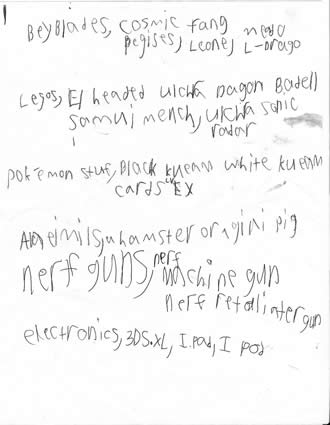 BeyBlades, cosmic fang
pegises, Leone, L-Drago
Legos, El headed ulcha Dagon Badell
samui mench, ulcha sonic
radar
pokemon stuf, Black kueam white kueam
cards EX
a hamster or a gini pig
nerf guns, nerf
machine gun
nerf retaliater gun
electronics, 3DS.XL, I.pad, I pod